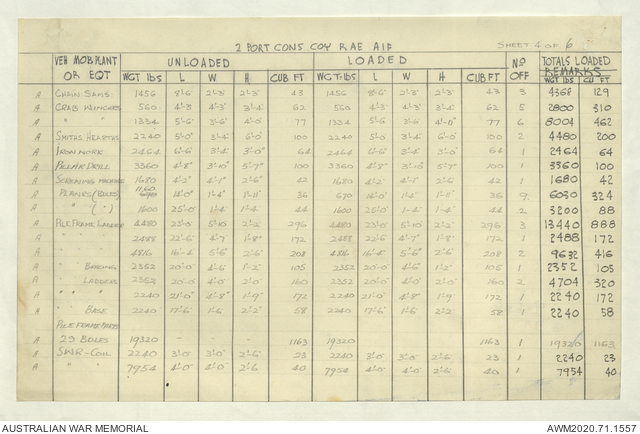 2 PORT CONS COY RAE AIF SHEET 4 OF 6
VEH MOB PLANT OR EQT UNLOADED LOADED NO OFF TOTALS LOADED
REMARKS
WGT lbs L W H CUB FT WGT lbs L W H CUB FT WGT lbs CU FT
A CHAIN SAWS 1456 8'-6 2'-3 2'-3 43 1456 8'-6 2'-3 2'-3 43 3 4368 129
A CRAB WINCHES 560 4'-3 4'-3 3'-4 62 560 4'-3 4'-3 3'-4 62 5 2800 310
A " " 1334 5'-6 3'-6 4'-0 77 1334 5'-6 3'-6 4'-0 77 6 8004 462
A SMITHS HEARTHS 2240 5'-0 3'-4 6'-0 100 2240 5'-0 3'-4 6'-0 100 2 4480 200
A IRON WORK 2464 6'-6 3'-4 3'-0 64 2464 6'-6 3'-4 3'-0 64 1 2464 64
A DRILL 3360 4'-8 3'-10 5'-7 100 3360 4'-8 3'-10 5'-7 100 1 3360 100
A SCREWING MACHINE 1680 4'-2 4'-1 2'-6 42 1680 4'-2 4'-1 2'-6 42 1 1680 42
A (BOLES) 670 14'-0 1'-4 1'-11 36 670 14'-0 1'-4 36 9 6030 324
A " ( " ) 1600 25'-0 1'-4 1'-4 44 1600 25'-0 1'-4 1'-4 44 2 3200 88
A PILE FRAME LEADER 4480 23'-0 5'-10 2'-2 296 4480 23'-0 5'-10 2'-2 296 3 13440 888
A " " " 2488 22'-6 4'-7 1'-8 172 2488 22'-6 4'-7 1'-8 172 1 2488 172
A " " " 4816 16'-4 5'-6 2'-6 208 4816 16'-4 5'-6 2'-6 208 2 9632 416
A " " BRACING 2352 20'-0 4'-6 1'-2 105 2352 20'-0 4'-6 1'-2 105 1 2352 105
A " " LADDERS 2352 20'-0 4'-0 2'-0 160 2352 20'-0 4'-0 2'-0 160 2 4704 320
A " " " 2240 21'-0 4'-8 1'-9 172 2240 21'-0 4'-8 1'-9 172 1 2240 172
A " " BASE 2240 17'-6 1'-6 2'-2 58 2240 17'-6 1'-6 2'-2 58 1 2240 58
PILE FRAME PARTS
A 29 BOLES 19320 - - - 1163 19320 - - - 1163 1 19320 1163
A SWR - COIL 2240 3'-0 3'-0 2'-6 23 2240 3'-0 3'-0 2'-6 23 1 2240 23
A " " 7954 4'-0 4'-0 2'-6 40 7954 4'-0 4'-0 2'-6 40 1 7954 40
AUSTRALIAN WAR MEMORIAL AWM2020.71.1557